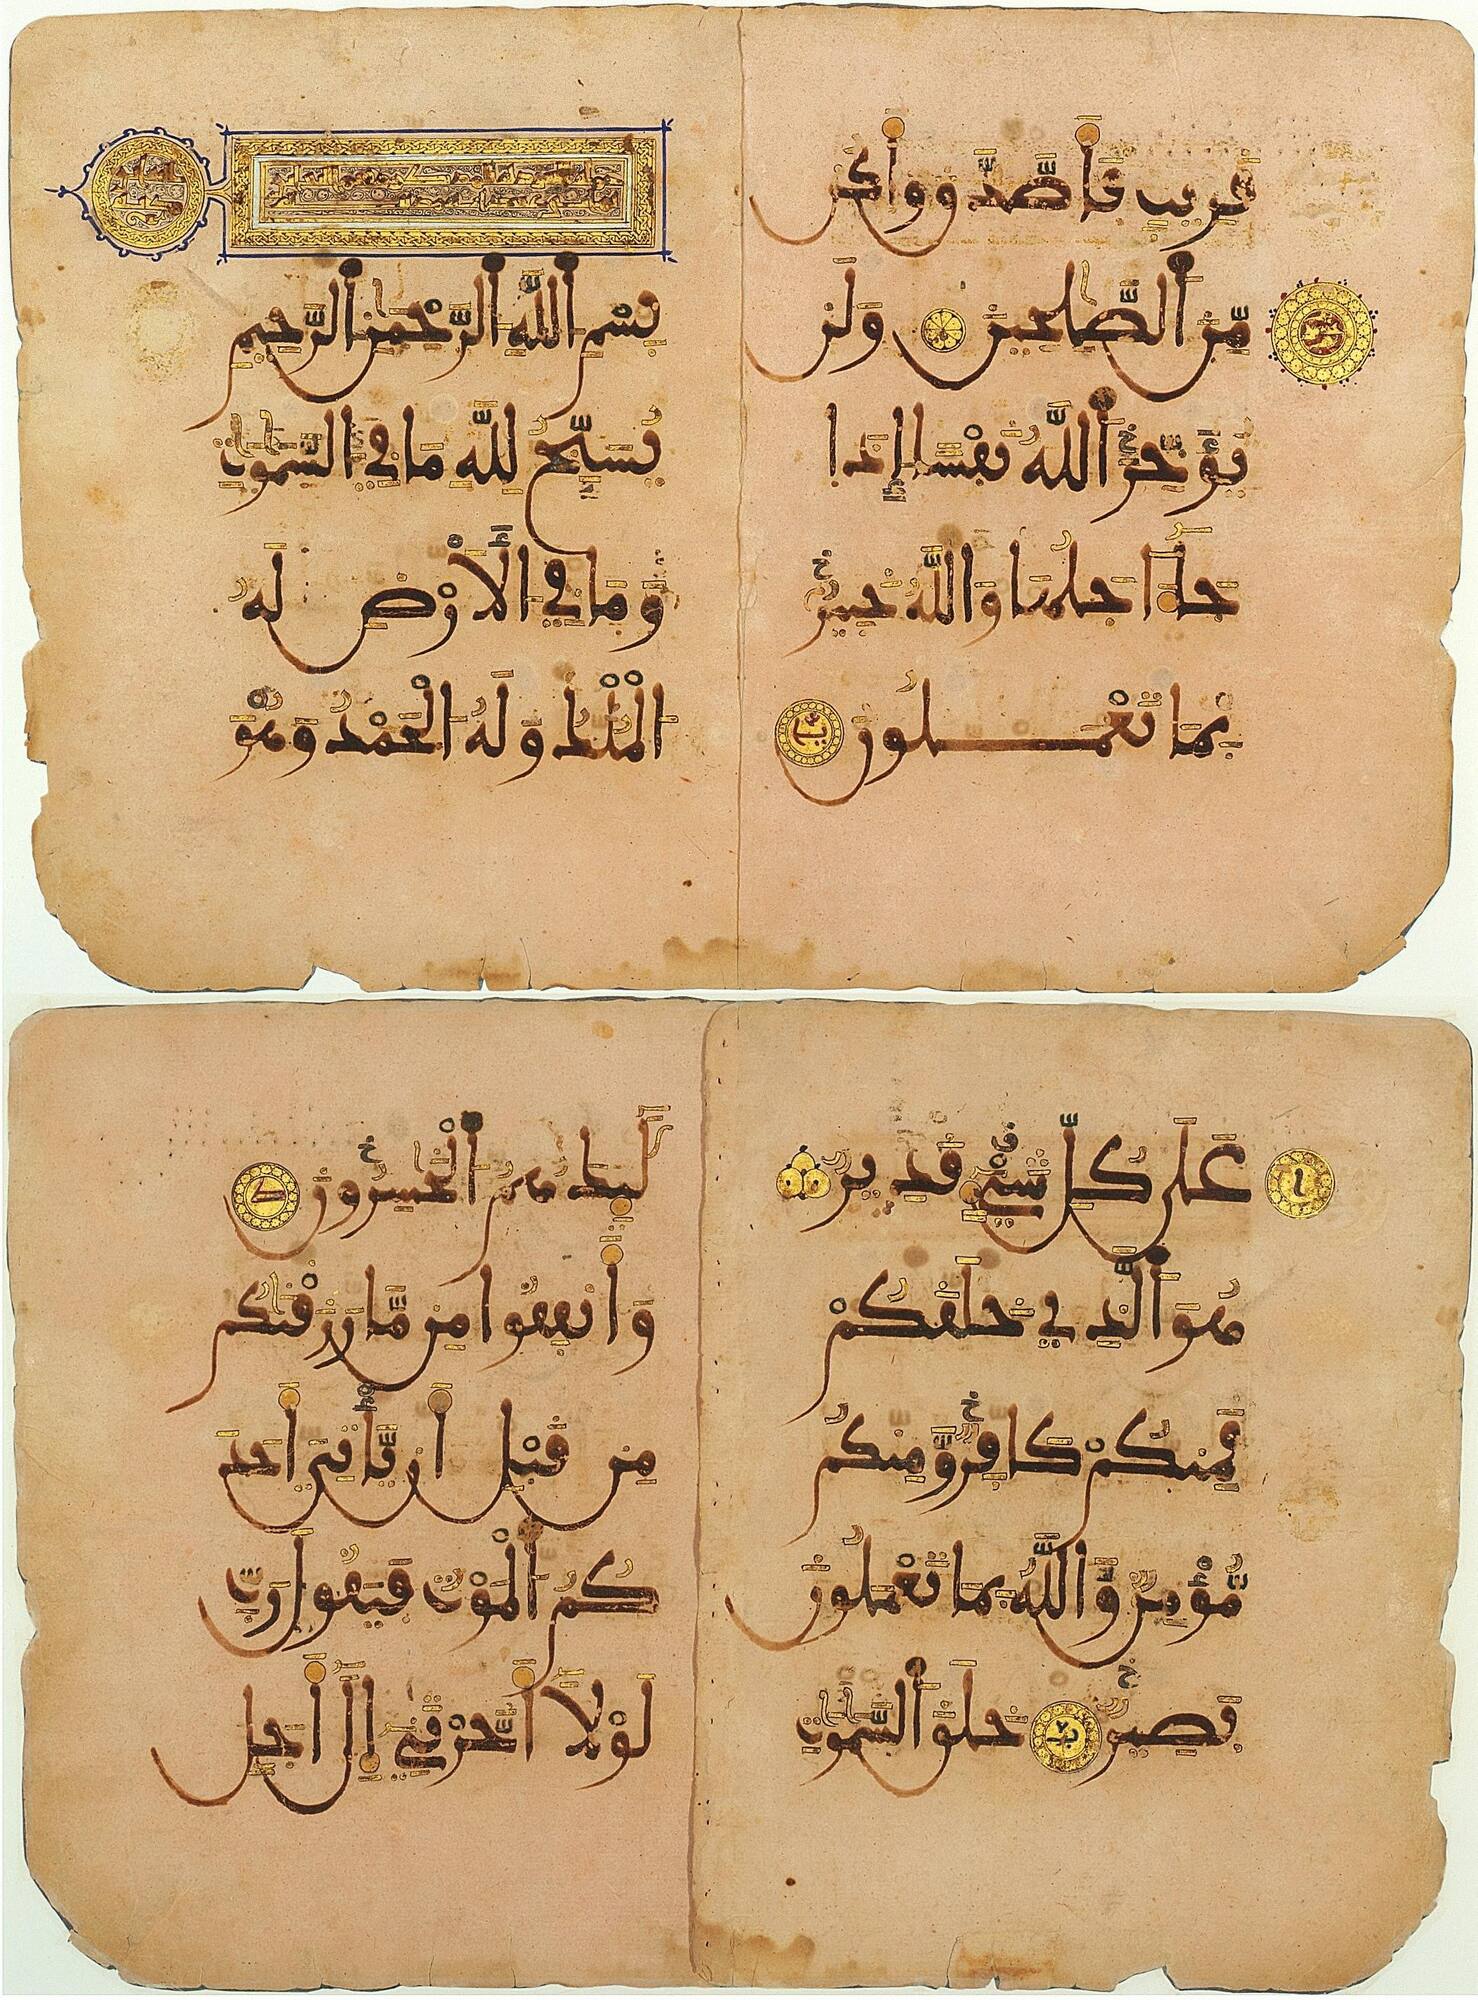 قَرِيبٍ فَأَصَّدَّقَ وَأَكُن
مِّنَ ٱلصَّٰلِحِينَ وَلَن
يُؤَخِّرَ ٱللَّهُ نَفْسًا إِذَا
جَآءَ اجَلُهَا وَٱللَّهُ خَبِيرٌ
بِمَا تَعْمَلُونَ
بِسْمِ ٱللَّهِ ٱلرَّحْمَٰنِ ٱلرَّحِيمِ
يُسَبِّحُ لِلَّهِ مَا فِي السَّمَٰوَٰتِ
وَمَا فِي الْأَرْضِ لَهُ
الْمُلْكُ وَلَهُ الْحَمْدُ وَهُوَ
عَلَىٰ كُلِّ شَيْءٍ قَدِيرٌ
هُوَ ٱلَّذِي خَلَقَكُمْ
فَمِنكُمْ كَافِرٌ وَمِنكُم
مُّؤْمِنٌ وَٱللَّهُ بِمَا تَعْمَلُونَ
بَصِيرٌ خَلَقَ ٱلسَّمَٰوَٰتِ
لَٰٓئِكَ هُمُ ٱلْخَٰسِرُونَ
وَأَنفِقُوا مِن مَّا رَزَقْنَٰكُم
مِن قَبْلِ أَن يَّأْتِيَ أَحَدَ
كُمُ ٱلْمَوْتُ فَيَقُولَ رَبِّ
لَوْلَآ أَخَّرْتَنِي إِلَىٰٓ أَجَلٍ